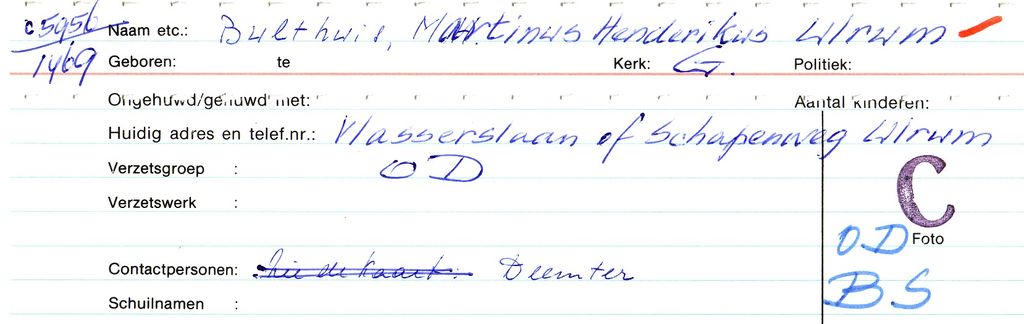 C5956 Naam etc.: Bulthuis, Martinus Henderikus Wirum
1469
Geboren: te Kerk: G. Politiek:
Ongehuwd/gehuwd met: Aantal kinderen:
Huidig adres en telef.nr.: Vlasserslaan of Schapenweg Wirum
Verzetsgroep : OD
C
Verzetswerk :
OD Foto
Contactpersonen: Zie de kaart. Deemter
BS
Schuilnamen :